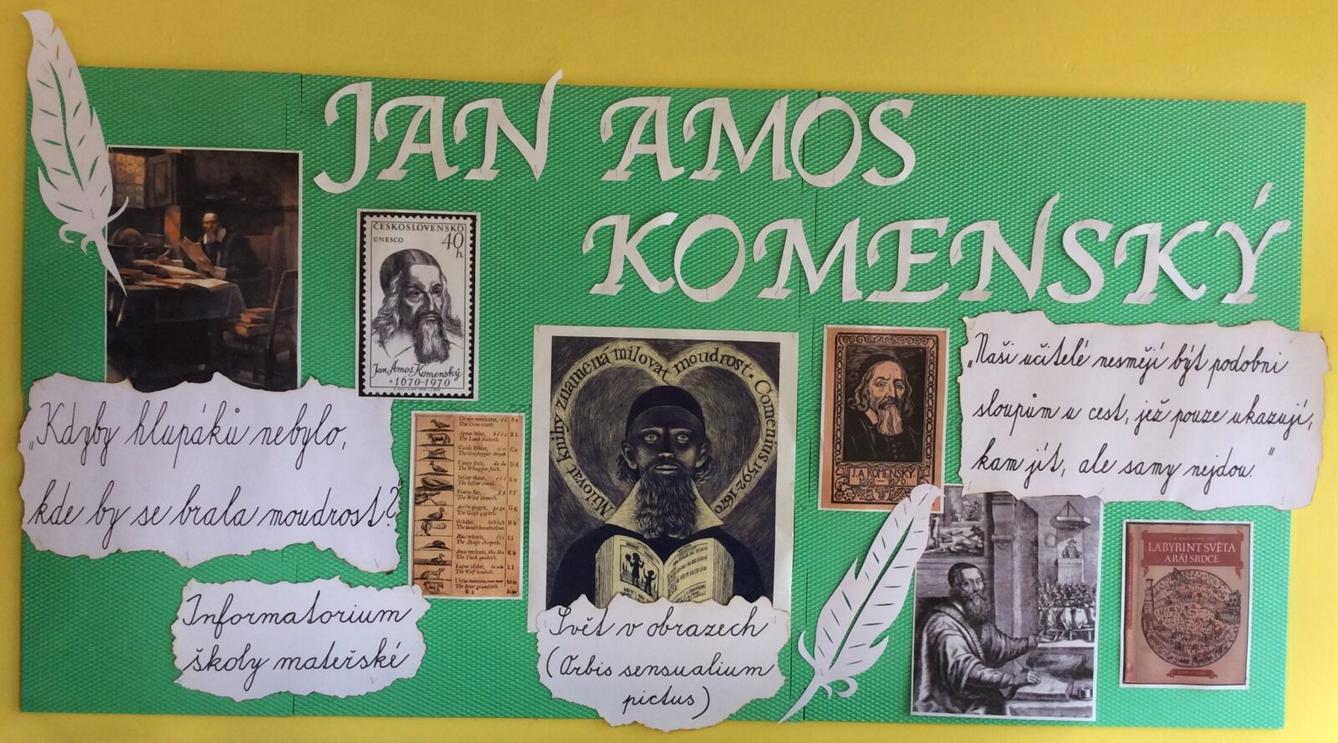 JAN AMOS
KOMENSKÝ
ČESKOSLOVENSKO
UNESCO 40
h
Jan Amos Komenský
* 1670-1970
"Kdyby hlupáků nebylo,
kde by se brala moudrost?"
Informatorium
školy mateřské
Milovat knihy znamená milovat moudrost. Comenius 1592-1670
Svět v obrazech
(Orbis sensualium
pictus)
J.A. KOMENSKÝ
1592 1670
„Naši učitelé nesmějí být podobni
sloupům u cest, jež pouze ukazují,
kam jít, ale samy nejdou."
LABYRINT SVĚTA
A RÁJ SRDCE